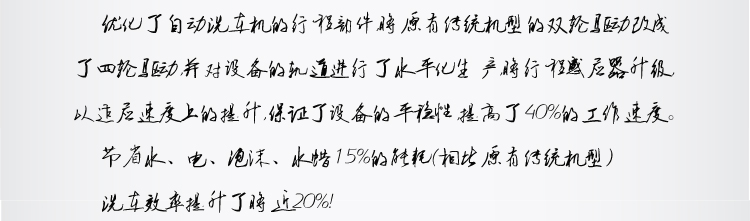 优化了自动洗车机的行程部件将原有传统机型的双轮驱动改成
了四轮驱动,并对设备的轨道进行了水平化生产,将行程感应器升级,
以适应速度上的提升,保证了设备的平稳性,提高了40%的工作速度。
节省水、电、泡沫、水蜡15%的能耗(相比原有传统机型)
洗车效率提升了将近20%!